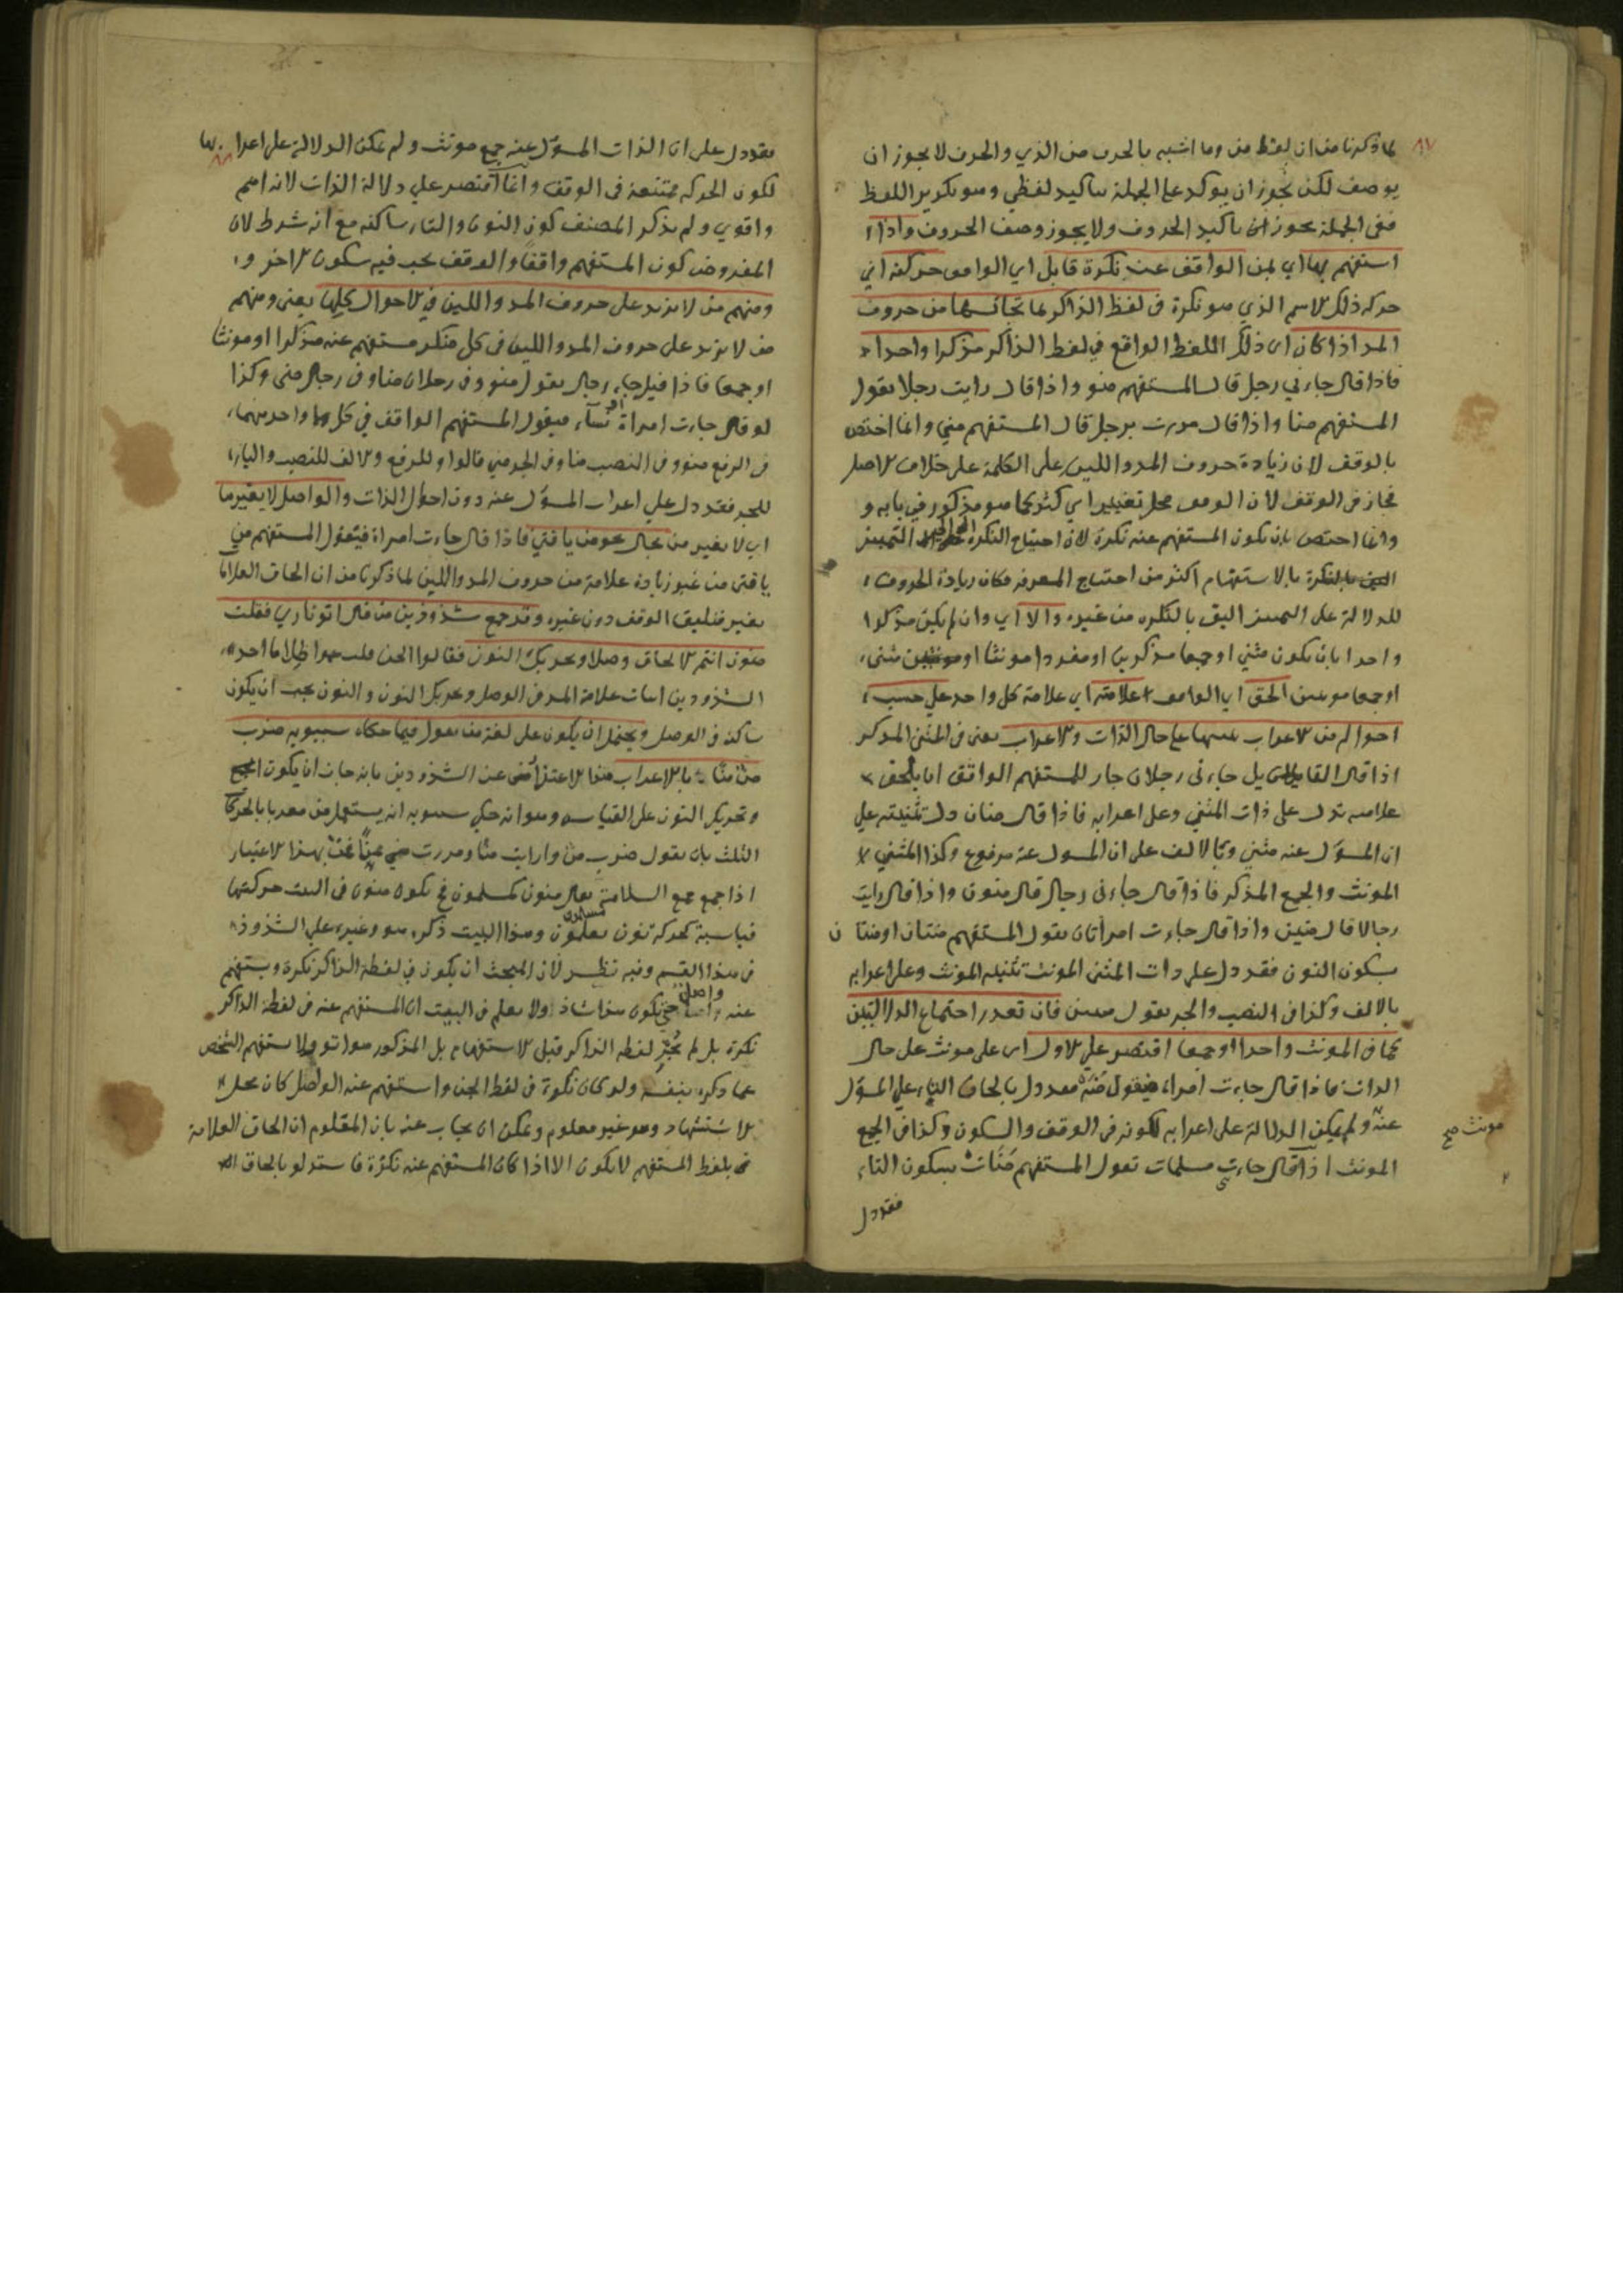 ٨٧
لما ذكرنا من ان لفظ من وما اشبه بالحرف من الذي والحرف لا يجوز ان
يوصف لكن يجوز ان يوكد على الجملة تاكيد لفظي وهو تكرير اللفظ
ففي الجملة يجوز ان تاكيد الحروف ولا يجوز وصف الحروف واذا
استفهم بها اي بمن الواقف عن نكرة قابل اي الواقف حركته اي
حركة ذلك الاسم الذي هو نكرة في لفظ الذاكر بما يجانسها من حروف
المد اذا كان اي ذلك اللفظ الواقع في لفظ الذاكر مذكرا واحدا
فاذا قال جاءني رجل قال المستفهم منو واذا قال رايت رجلا يقول
المستفهم منا واذا قال مررت برجل قال المستفهم مني وانما اختص
بالوقف لان زيادة حروف المد واللين على الكلمة على خلاف الاصل
فجاز في الوقف لان الوقف محل تغيير اي كثير كما هو مذكور في بابه و
وانما اختص بان يكون المستفهم عنه نكرة لان احتياج النكرة الى التمييز
بالاستفهام اكثر من احتياج المعرفة فكان زيادة الحروف
للدلالة على التمييز اليق بالنكرة من غيره والا اي وان لم يكن مذكرا
واحدا بان يكون مثنى او جمعا مذكرين او مفردا مونثا او مثنى
او جمعا مونثين الحق اي الواقف علامته اي علامة كل واحد على حسب
احواله من الاعراب تنبيها على حال الذات والاعراب يعني في المثنى المذكر
اذا قال القايل جاءني رجلان جاز للمستفهم الواقف ان يلحق
علامة تدل على ذات المثنى وعلى اعرابه فاذا قال منان دل تثنيته على
ان المسؤل عنه مثنى وبالالف على ان المسول عنه مرفوع وكذا المثنى
المونث والجمع المذكر فاذا قال جاءني رجال قال منون واذا قال رايت
رجالا قال منين واذا قال جاءت امراتان يقول المستفهم منتان او منتان
بسكون النون فقد دل على ذات المثنى المونث تثنية المونث وعلى اعرابه
بالالف وكذا في النصب والجر يقول منتين فان تعذر اجتماع الدلالتين
كما في المونث واحدا او جمعا اقتصر على الاول اي على مونث على حال
الذات فاذا قال جاءت امراة فيقول منه فقد دل بالحاق التاء على المسؤل
عنه ولم يمكن الدلالة على اعرابه لكونه في الوقف والسكون وكذا في الجمع
مونث صح
المونث اذا قال جاءتني مسلمات تقول المستفهم منات بسكون التاء
فقد دل
فقد دل على ان الذات المسؤل عنه جمع مونث ولم يمكن الدلالة على اعرابها
٨٨
لكون الحركة ممتنعة في الوقف وانما اقتصر على دلالة الذات لانه اهم
واقوي ولم يذكر المصنف كون النون والتاء ساكنة مع انه شرط لان
المفروض كون المستفهم واقفا والوقف يجب فيه سكون الاخر و
ومنهم من لا يزيد على حروف المد واللين في الاحوال كلها يعني ومنهم
من لا يزيد على حروف المد واللين في كل منكر مستفهم عنه مذكرا او مونثا
او جمعا فاذا قيل جاء رجال يقول منو وفي رجلان منا وفي رجال مني وكذا
لو قال جاءت امراة او نساء فيقول المستفهم الواقف في كل واحد منهما
في الرفع منو وفي النصب منا وفي الجر مني فالواو للرفع والالف للنصب والياء
للجر فقد دل على اعراب المسؤل عنه دون احوال الذات والواصل لا يغير ما
اي لا يغير من بحال نحو من يا فتى فاذا قال جاءت امراة فيقول المستفهم من
يا فتى من غير زيادة علامة من حروف المد واللين لما ذكرنا من ان الحاق العلامة
تغير فيليق الوقف دون غيره وقد جمع شذوذين من قال اتو ناري فقلت
منون انتم الالحاق وصلا وتحريك النون فقالوا الجن قلت عموا ظلاما احد
الشذوذين اثبات علامة المد في الوصل وتحريك النون والنون يجب ان يكون
ساكنة في الوصل ويحتمل ان يكون على لغة من يقول فيما حكاه سيبويه ضرب
من منا بالاعراب هذا الاعتراض عن الشذوذين بانه جاز ان يكون الجمع
وتحريك النون على القياس وهو انه حكي سيبويه انه يستعمل من معربا بالحركات
الثلث بان يقول ضرب من ورايت منا ومررت بهذا الاعتبار
اذا جمع جمع السلامة يقال منون كمسلمون فح يكون منون في البيت حركتها
قياسية كحركة نون مسلمون وهذا البيت ذكره هو وغيره على الشذوذ
في هذا القسم وفيه نظر لان المبحث ان يكون في لفظة الذاكر نكرة ويستفهم
عنه واصلا حتى يكون هذا شاذ ولا يعلم في البيت ان المستفهم عنه في لفظة الذاكر
نكرة بل لم يجر لفظه الذاكر قبل الاستفهام بل المذكور هو اتو ولا يستفهم الشخص
عما ذكره بنفسه ولو كان نكرة في لفظ الجن واستفهم عنه الواصل كان محل
الاستشهاد وهو غير معلوم ويمكن ان يجاب عنه بان المعلوم ان الحاق العلامة
في بلفظ المستفهم لا يكون الا اذا كان المستفهم عنه نكرة فاستدلو بالحاق